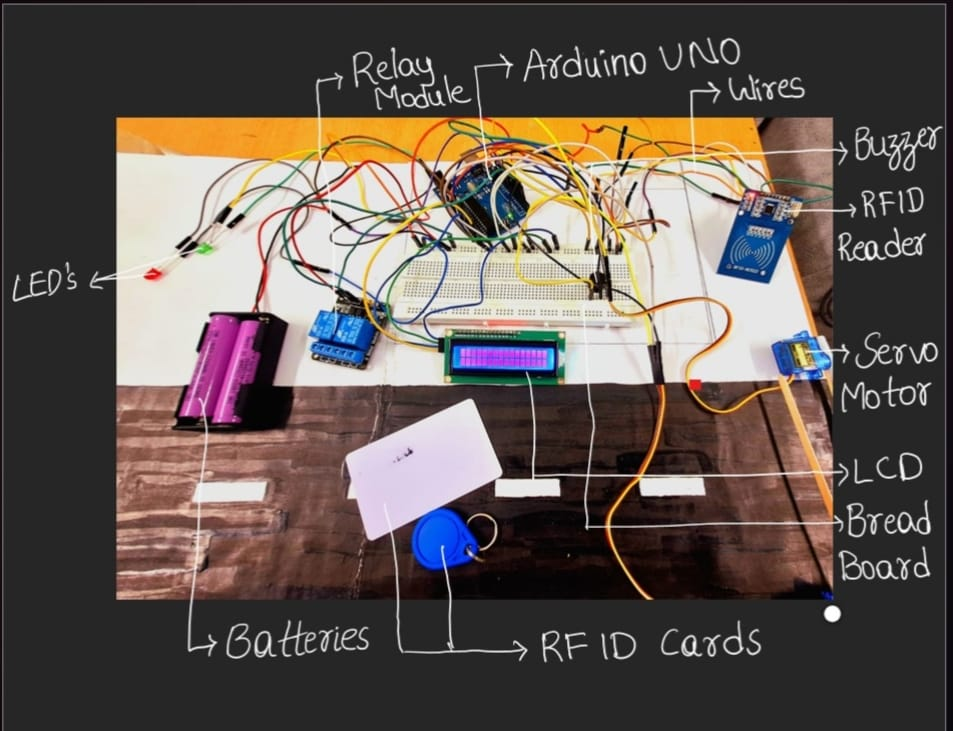 Relay
Module
Arduino UNO
Wires
Buzzer
RFID
Reader
LED's
Servo
Motor
LCD
Bread
Board
Batteries
RFID Cards